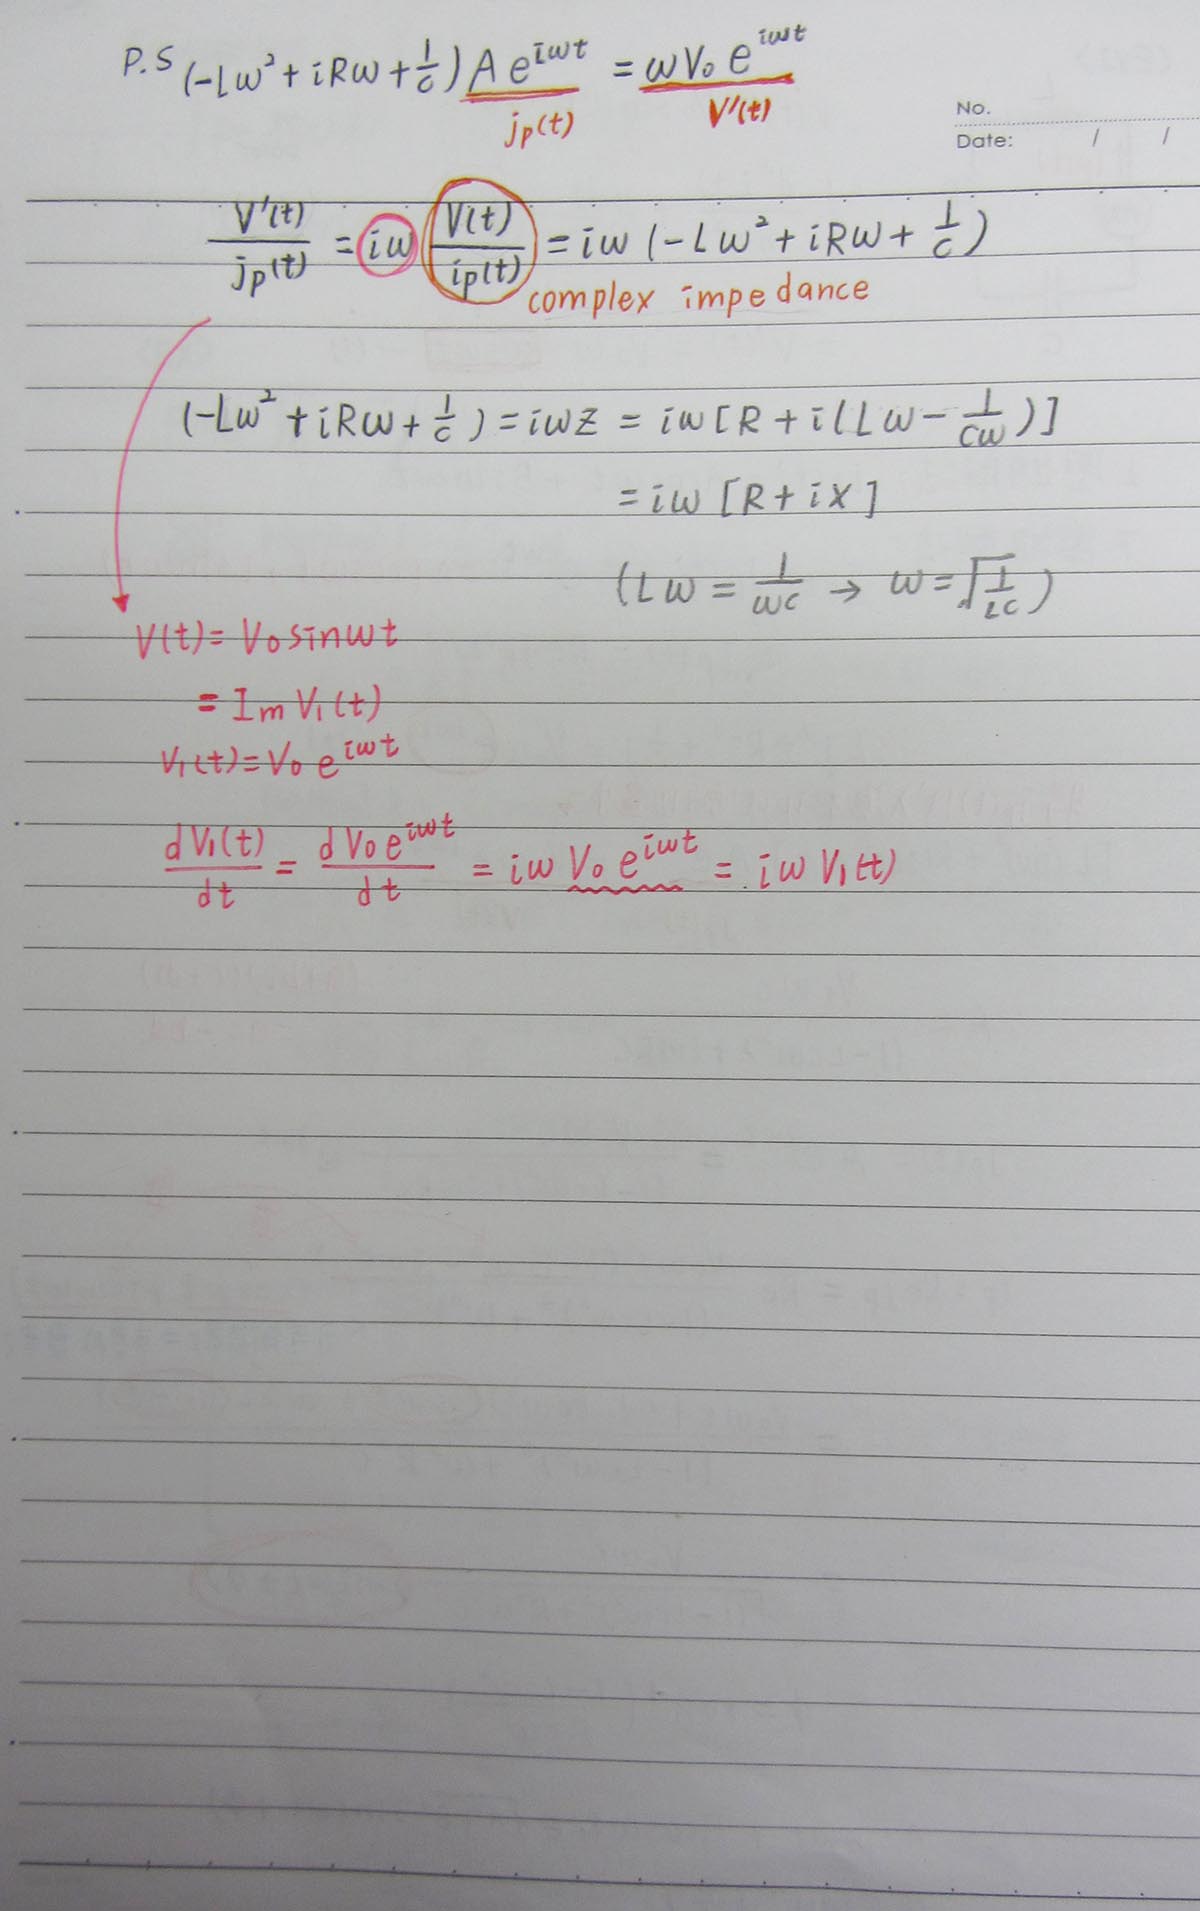 P.S (-Lω² + iRω + 1/C) A e^{iωt} = ωV₀ e^{iωt}
jp(t) V'(t)
No.
Date: / /
V'(t)/jp(t) = iω V(t)/ip(t) = iω (-Lω² + iRω + 1/C)
complex impedance
(-Lω² + iRω + 1/C) = iωZ = iω[R + i(Lω - 1/Cω)]
= iω [R + iX]
(Lω = 1/ωC → ω = √1/LC)
V(t) = V₀ sinωt
= Im V₁(t)
V₁(t) = V₀ e^{iωt}
dV₁(t)/dt = dV₀e^{iωt}/dt = iω V₀ e^{iωt} = iω V₁(t)